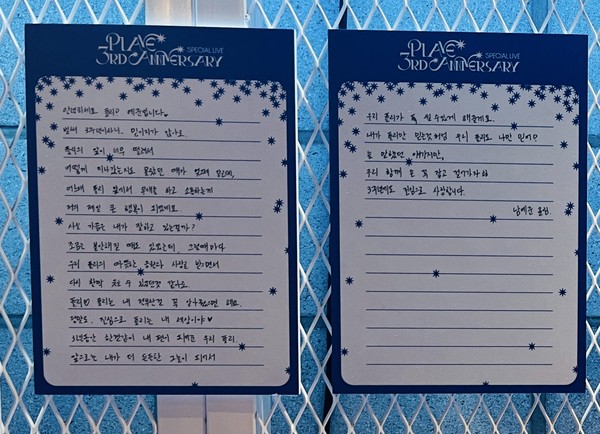 PLAVE
SPECIAL LIVE
3RD ANNIVERSARY
안녕하세요 플리? 예준입니다.
벌써 3주년이라니. 믿어지지 않아요.
플리의 앞이 너무 떨려서
어떻게 지나갔는지도 몰랐던 때가 엊그제 같은데,
이렇게 플리 앞에서 무대를 하고 소통하는게
저의 제일 큰 행복이 되었네요
사실 가끔은 내가 잘하고 있는걸까?
조금은 불안해질 때도 있었는데, 그럴때마다
우리 플리의 따뜻한 응원과 사랑을 받으면서
다시 활짝 웃을 수 있었던것 같아요.
플리♡ 플리는 내 전부란걸 꼭 알아줬으면 해요.
정말로. 진심으로 플리는 내 세상이야♥
3년동안 한결같이 내 편이 되어준 우리 플리.
앞으로는 내가 더 든든한 그늘이 되어서
PLAVE
SPECIAL LIVE
3RD ANNIVERSARY
우리 플리가 푹 쉴 수 있게 해줄게요.
내가 플리만 믿는것처럼 우리 플리도 나만 믿어?
늘 말했던 얘기지만,
우리 함께 손 꼭 잡고 걸어가자
3주년에도 진심으로 사랑합니다.
남예준 올림.